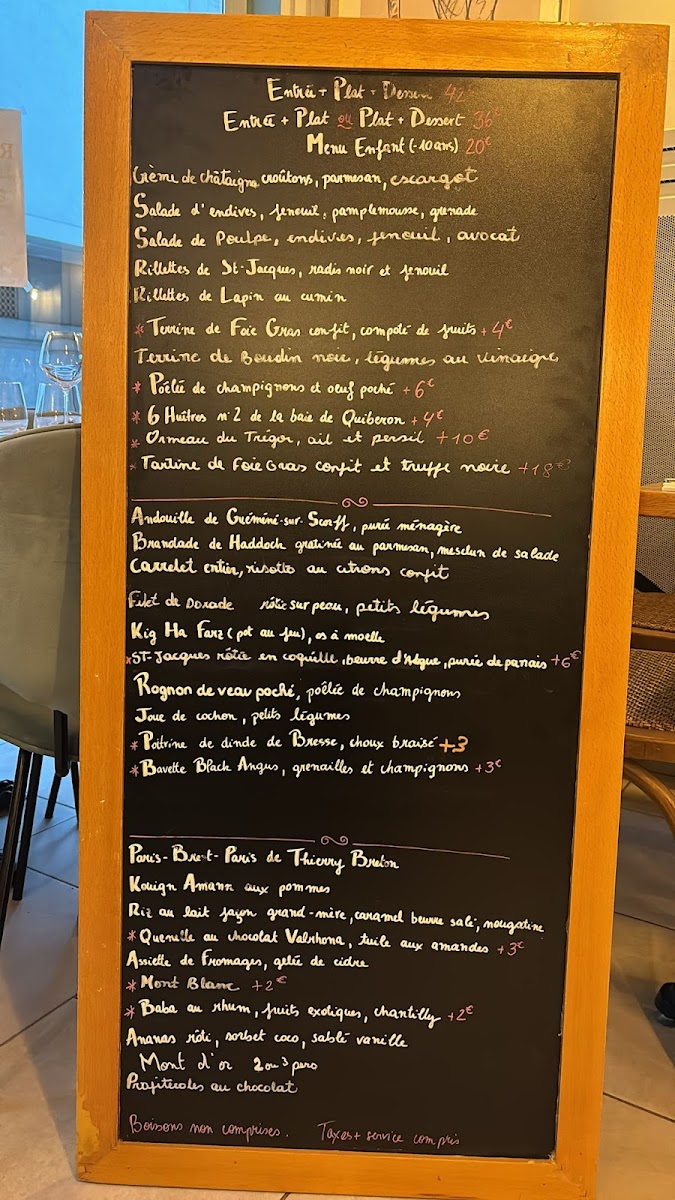 Entrée + Plat + Dessert 42€
Entrée + Plat ou Plat + Dessert 36€
Menu Enfant (-10 ans) 20€
Crème de châtaigne croûtons, parmesan, escargot
Salade d'endives, fenouil, pamplemousse, grenade
Salade de Poulpe, endives, fenouil, avocat
Rillettes de St-Jacques, radis noir et fenouil
Rillettes de Lapin au cumin
* Terrine de Foie Gras confit, compoté de fruits + 4€
Terrine de Boudin noir, légumes au vinaigre
* Poêlée de champignons et oeuf poché + 6€
* 6 Huîtres n°2 de la baie de Quiberon + 4€
* Ormeau du Trégor, ail et persil + 10€
* Tartine de Foie Gras confit et truffe noire + 18€
Andouille de Guémené-sur-Scorff, purée ménagère
Brandade de Haddock gratinée au parmesan, mesclun de salade
Carrelet entier, risotto au citrons confit
Filet de Dorade rôtie sur peau, petits légumes
Kig Ha Farz (pot au feu), os à moelle
* St-Jacques rôtie en coquille, beurre d'Algue, purée de panais + 6€
Rognon de veau poché, poêlée de champignons
Joue de cochon, petits légumes
* Poitrine de dinde de Bresse, choux braisé + 3
* Bavette Black Angus, grenailles et champignons + 3€
Paris-Brest-Paris de Thierry Breton
Kouign Amann aux pommes
Riz au lait façon grand-mère, caramel beurre salé, nougatine
* Quenelle au chocolat Valrhona, tuile aux amandes + 3€
Assiette de Fromages, gelée de cidre
* Mont Blanc + 2€
* Baba au rhum, fruits exotiques, chantilly + 2€
Ananas rôti, sorbet coco, sablé vanille
Mont d'or 2 ou 3 pers
Profiteroles au chocolat
Boissons non comprises. Taxes + service compris